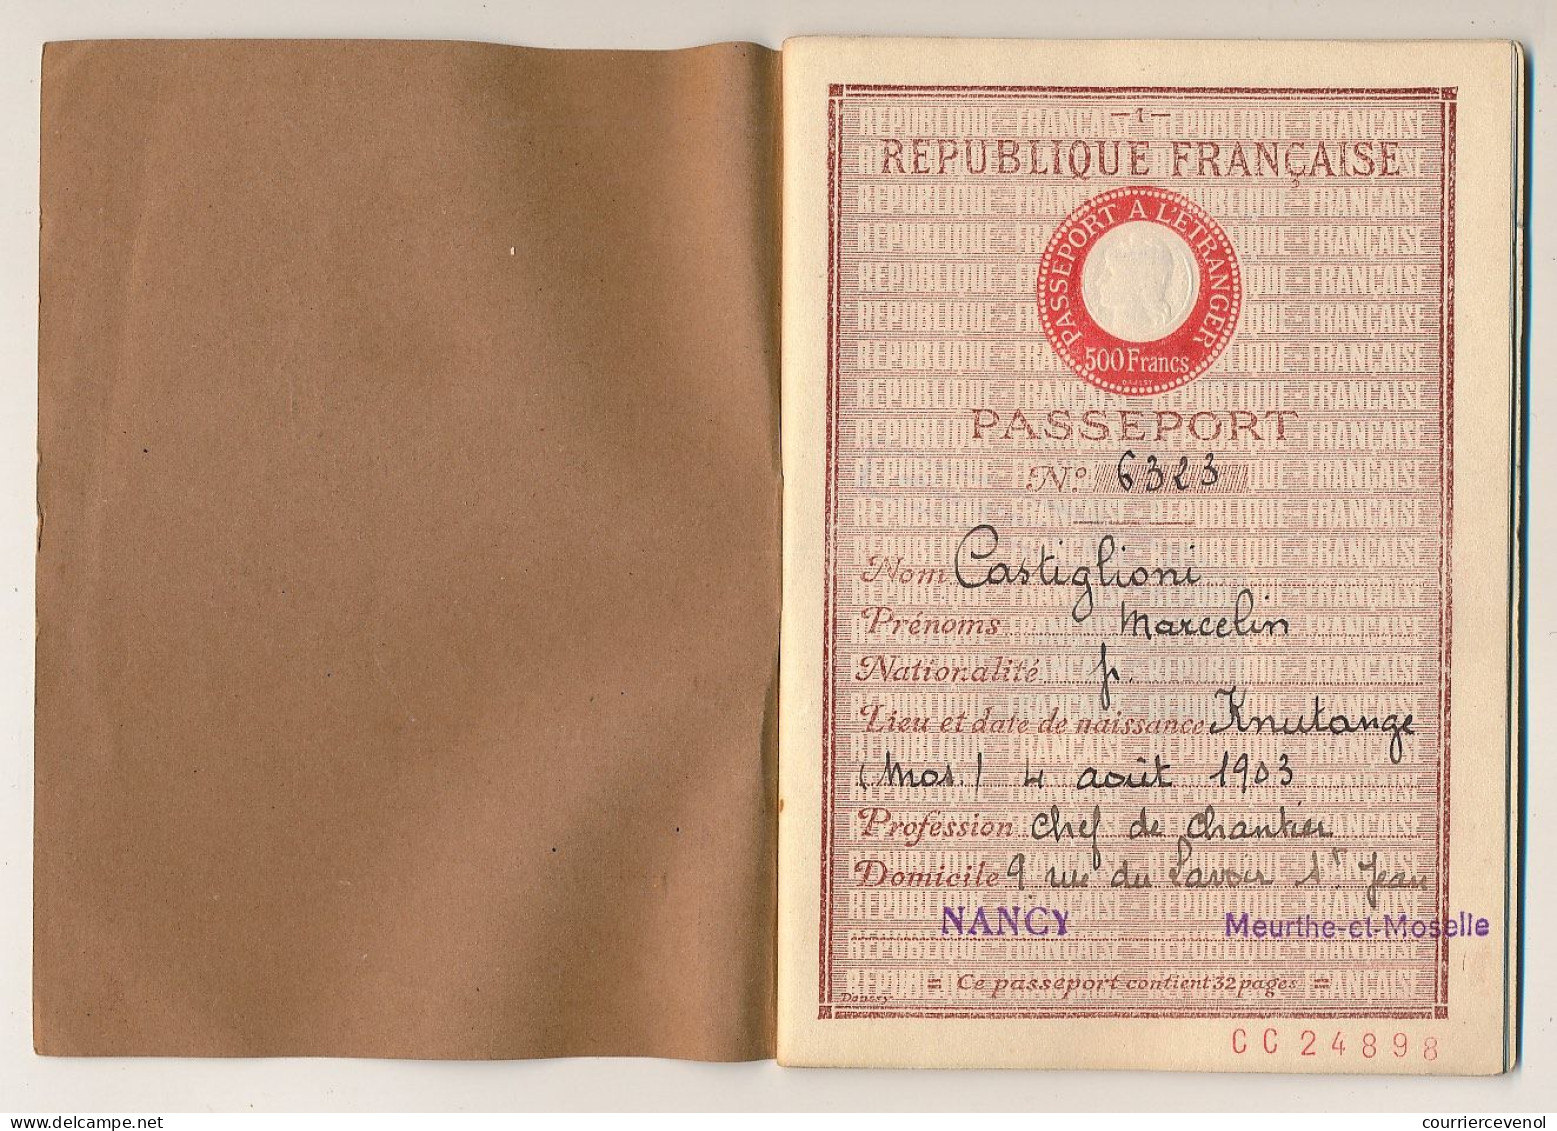 — 1 —
REPUBLIQUE FRANÇAISE
PASSEPORT A L'ETRANGER
500 Francs
PASSEPORT
No 6323
Nom Castiglioni
Prénoms Marcelin
Nationalité fr.
Lieu et date de naissance Knutange
(Mos.) 4 août 1903
Profession chef de chantier
Domicile 9 rue du Lavoir St Jean
NANCY Meurthe-et-Moselle
= Ce passeport contient 32 pages =
CC 24898
courriercevenol